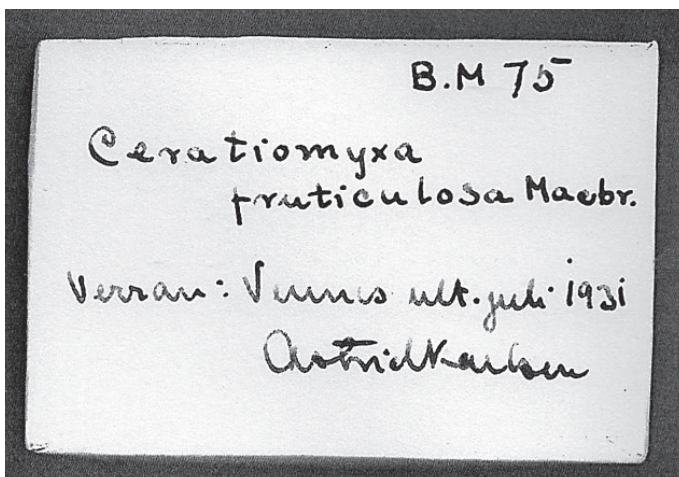 B.M 75
Ceratiomyxa
fruticulosa Macbr.
Verran: Vennes ult. juli 1931
Astrid Karlsen